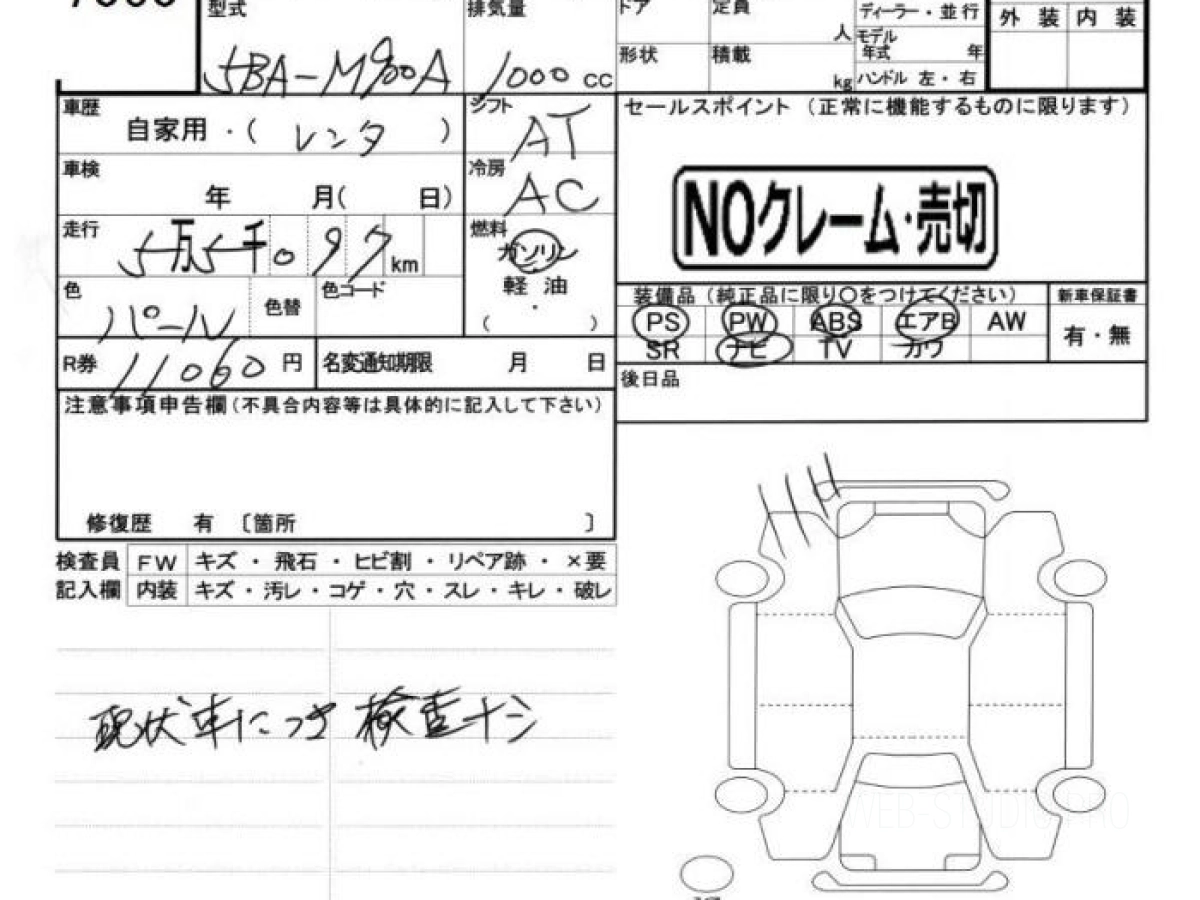 型式 排気量 ドア 定員 人 ディーラー・並行 外 装 内 装
5BA-M900A 1000 CC 形状 積載 kg モデル年式 年
ハンドル 左・右
車歴 自家用・( レンタ ) シフト AT
セールスポイント（正常に機能するものに限ります）
車検 年 月( 日) 冷房 AC
NOクレーム・売切
走行 5万5千097km 燃料 ガソリン
軽 油
・
( )
色 パール 色替 色コード
装備品（純正品に限り○をつけてください） 新車保証書
PS PW ABS エアB AW 有・無
SR ナビ TV カワ
R券 11060 円 名変通知期限 月 日
後日品
注意事項申告欄(不具合内容等は具体的に記入して下さい)
修復歴 有 〔箇所 〕
検査員 FW キズ・飛石・ヒビ割・リペア跡・×要
記入欄 内装 キズ・汚レ・コゲ・穴・スレ・キレ・破レ
現状車につき 検査ナシ
WEB-STUDIO.PRO